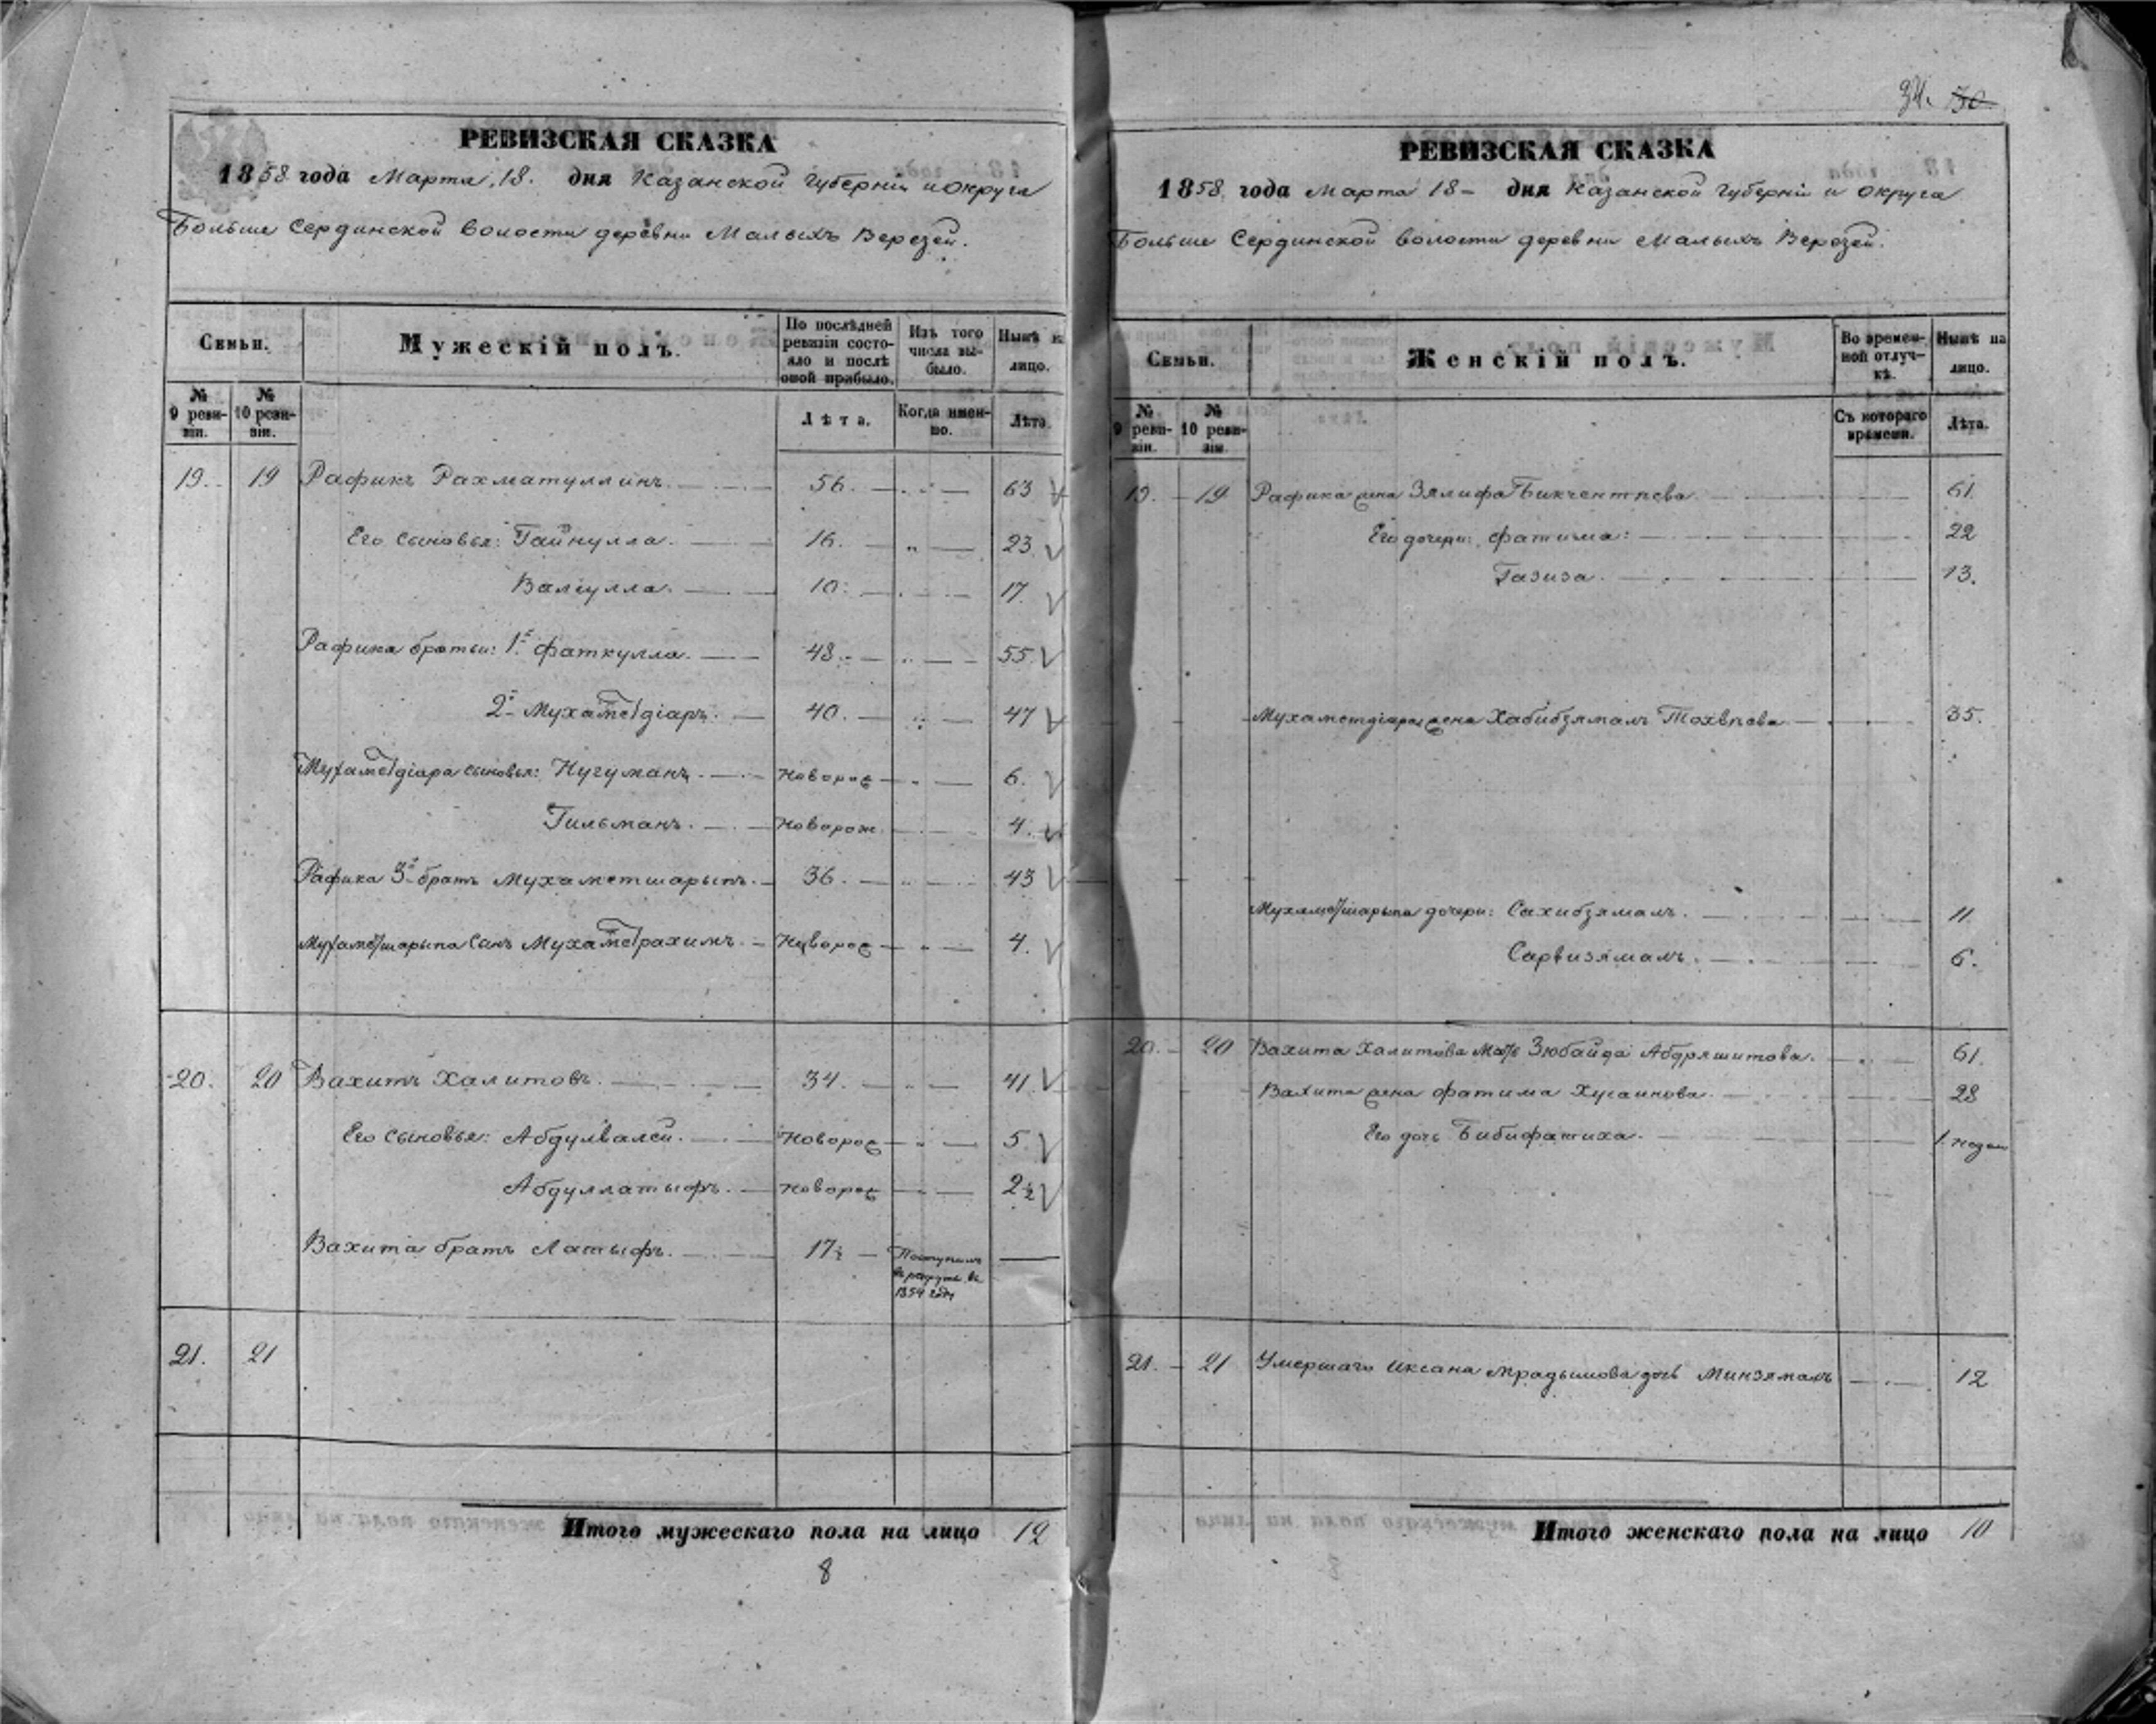 РЕВИЗСКАЯ СКАЗКА
1858 года Марта 18. дня Казанской Губерніи и округа
Больше Сердинской волости деревни Малыхъ Верезей.
Семьи.
Мужескій полъ.
По послѣдней ревизіи состояло и послѣ оной прибыло.
Изъ того числа выбыло.
Нынѣ на лицо.
№ 9 ревизіи.
№ 10 ревизіи.
Лѣта.
Когда именно.
Лѣта.
19. 19 Рафикъ Рахматуллинъ. 56. 63
Его сыновья: Гайнулла. 16. 23
Валіулла. 10. 17.
Рафика братья: 1й Фаткулла. 48. 55
2й Мухаметдіаръ. 40. 47
Мухаметдіара сыновья: Нугуманъ. Новорож 6.
Гильманъ. Новорож. 4.
Рафика 3й братъ Мухаметшарыпъ. 36. 43
Мухаметшарыпа сынъ Мухаметрахимъ. Новорож 4.
20. 20 Вахитъ Халитовъ. 34. 41.
Его сыновья: Абдулвалей. Новорож 5
Абдуллатыфъ. Новорож 2½
Вахита братъ Латыфъ. 17½ Поступилъ
въ рекруты въ
1854 году
21. 21
Итого мужескаго пола на лицо 12
8
34. 30
РЕВИЗСКАЯ СКАЗКА
1858 года Марта 18 дня Казанской Губерніи и округа
Больше Сердинской волости деревни Малыхъ Верезей.
Семьи.
Женскій полъ.
Во временной отлучкѣ.
Нынѣ на лицо.
№ 9 ревизіи.
№ 10 ревизіи.
Съ котораго времени.
Лѣта.
19. 19 Рафика жена Зялифа Бикчентѣева. 61.
Его дочери: Фатима: 22
Газиза. 13.
Мухаметдіара жена Хабибзямалъ 35.
Мухаметшарыпа дочери: Сахибзямалъ. 11.
Сарвизямалъ. 6.
20. 20 Вахита Халитова мать Зюбайда Абдряшитова. 61.
Вахита жена Фатима Хусаинова. 28
Его дочь Бибифатиха. 1. недел
21. 21 Умершаго Иксана дочь Минзямалъ 12
Итого женскаго пола на лицо 10